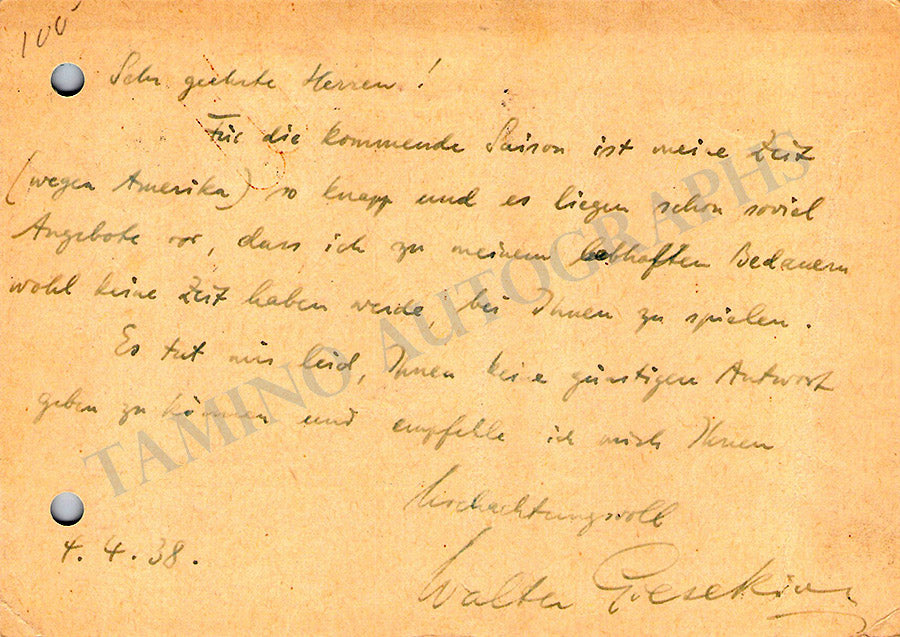 100
Sehr geehrte Herren!
Für die kommende Saison ist meine Zeit
(wegen Amerika) so knapp und es liegen schon soviel
Angebote vor, dass ich zu meinem lebhaften Bedauern
wohl keine Zeit haben werde, bei Ihnen zu spielen.
Es tut mir leid, Ihnen keine günstigen Antwort
geben zu können und empfehle ich mich Ihnen
Hochachtungsvoll
4.4.38.
Walter Gieseking
TAMINO AUTOGRAPHS